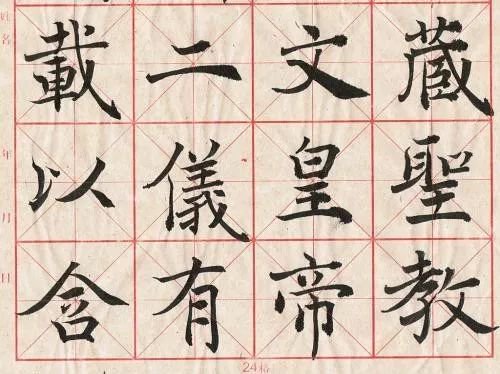 蔵聖教
文皇帝
二儀有
載以含
姓名
年
月
日
24格